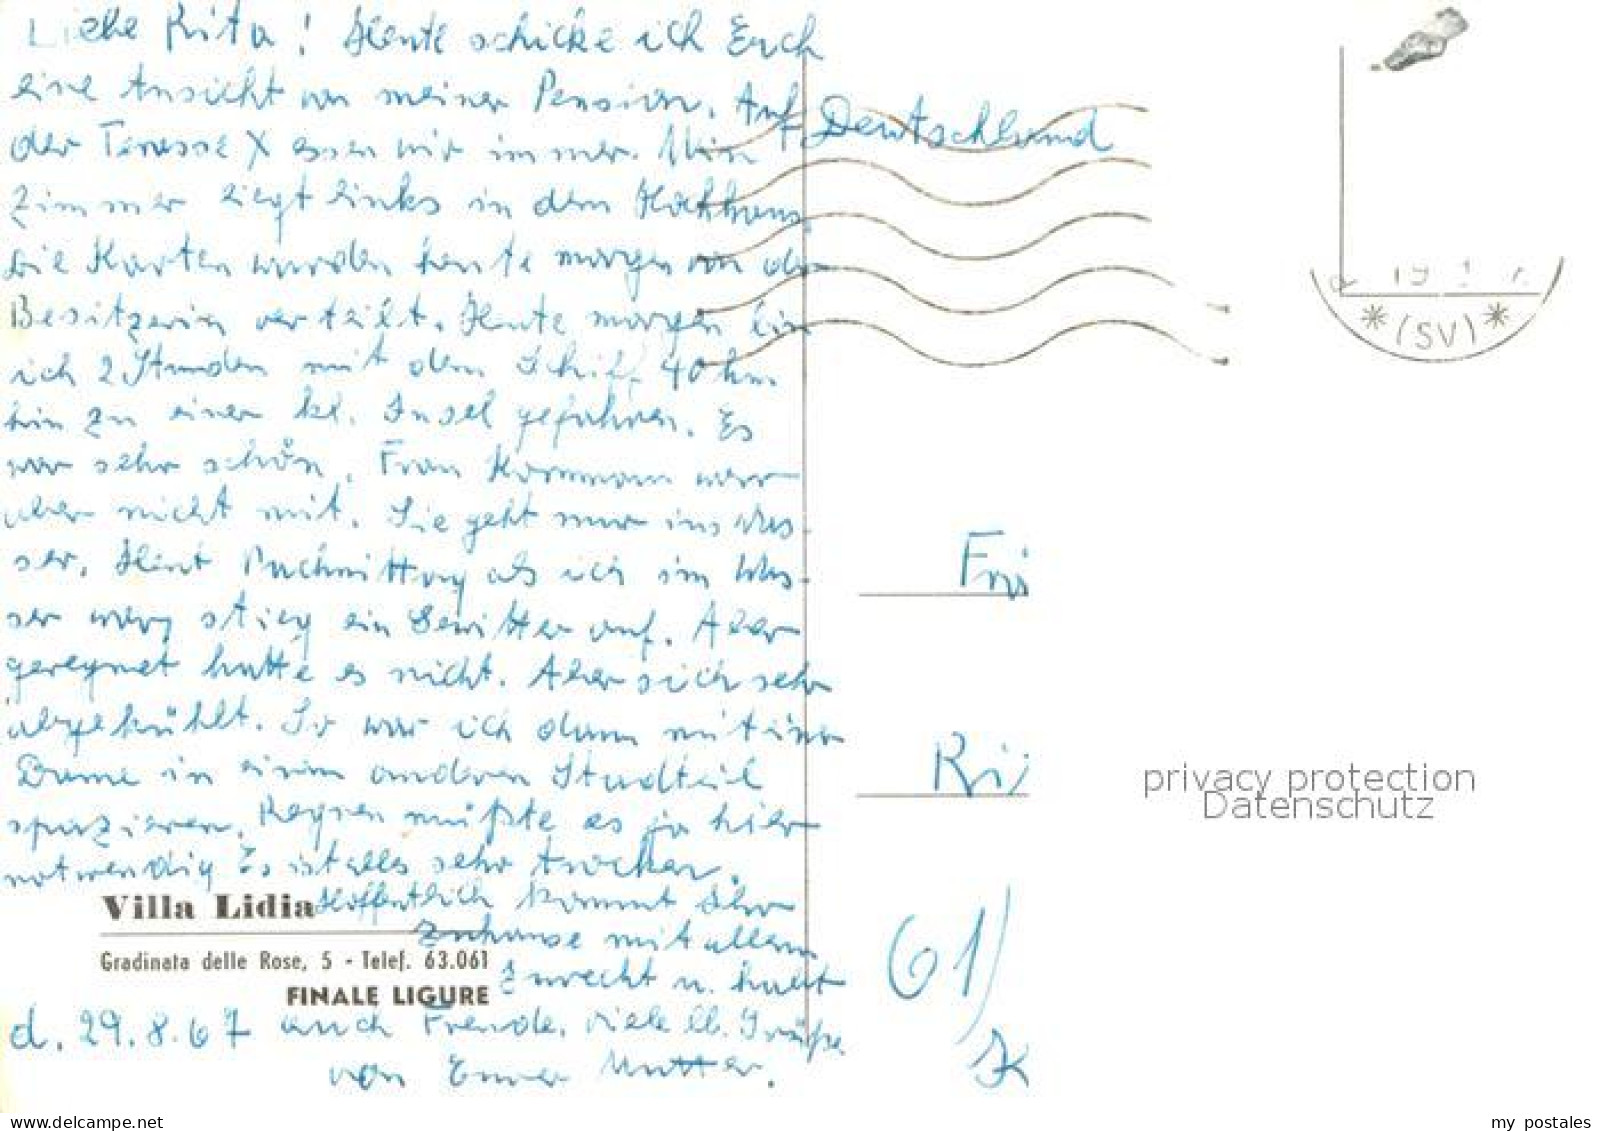 Liebe Rita! Heute schicke ich Euch
eine Ansicht von meiner Pension. Auf
der Terasse X essen wir immer. Mein
Zimmer liegt links in dem Hochhaus.
Die Karten wurden heute morgen von der
Besitzerin verteilt. Heute morgen bin
ich 2 Stunden mit dem Schiff 40 km
hin zu einer kl. Insel gefahren. Es
war sehr schön. Frau Kornmann war
aber nicht mit. Sie geht nur ins Was-
ser. Heut Nachmittag als ich im Was-
ser war, stieg ein Gewitter auf. Aber
geregnet hatte es nicht. Aber sich sehr
abgekühlt. So war ich dann mit einer
Dame in einem anderen Stadtteil
spazieren. Regnen müßte es ja hier
notwendig Es ist alles sehr trocken.
Hoffentlich kommt Ihr
Zuhause mit allem
zurecht u. habt
auch Freude. Viele lb. Grüße
von Eurer Mutter.
d. 29.8.67
Villa Lidia
Gradinata delle Rose, 5 - Telef. 63.061
FINALE LIGURE
Deutschland
*(SV)*
Ri
61
privacy protection
Datenschutz
delcampe.net
my_postales